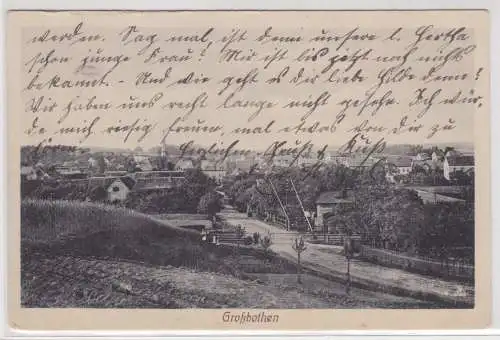 werden. Sag mal, ist denn unsere l. Hertha
schon junge Frau? Mir ist bis jetzt noch nichts
bekannt. – Und wie geht es dir liebe Hilde denn?
Wir haben uns recht lange nicht gesehn. Ich wür-
de mich riesig freuen, mal etwas von dir zu
Herzlichen Gruß & Kuß
Großbothen